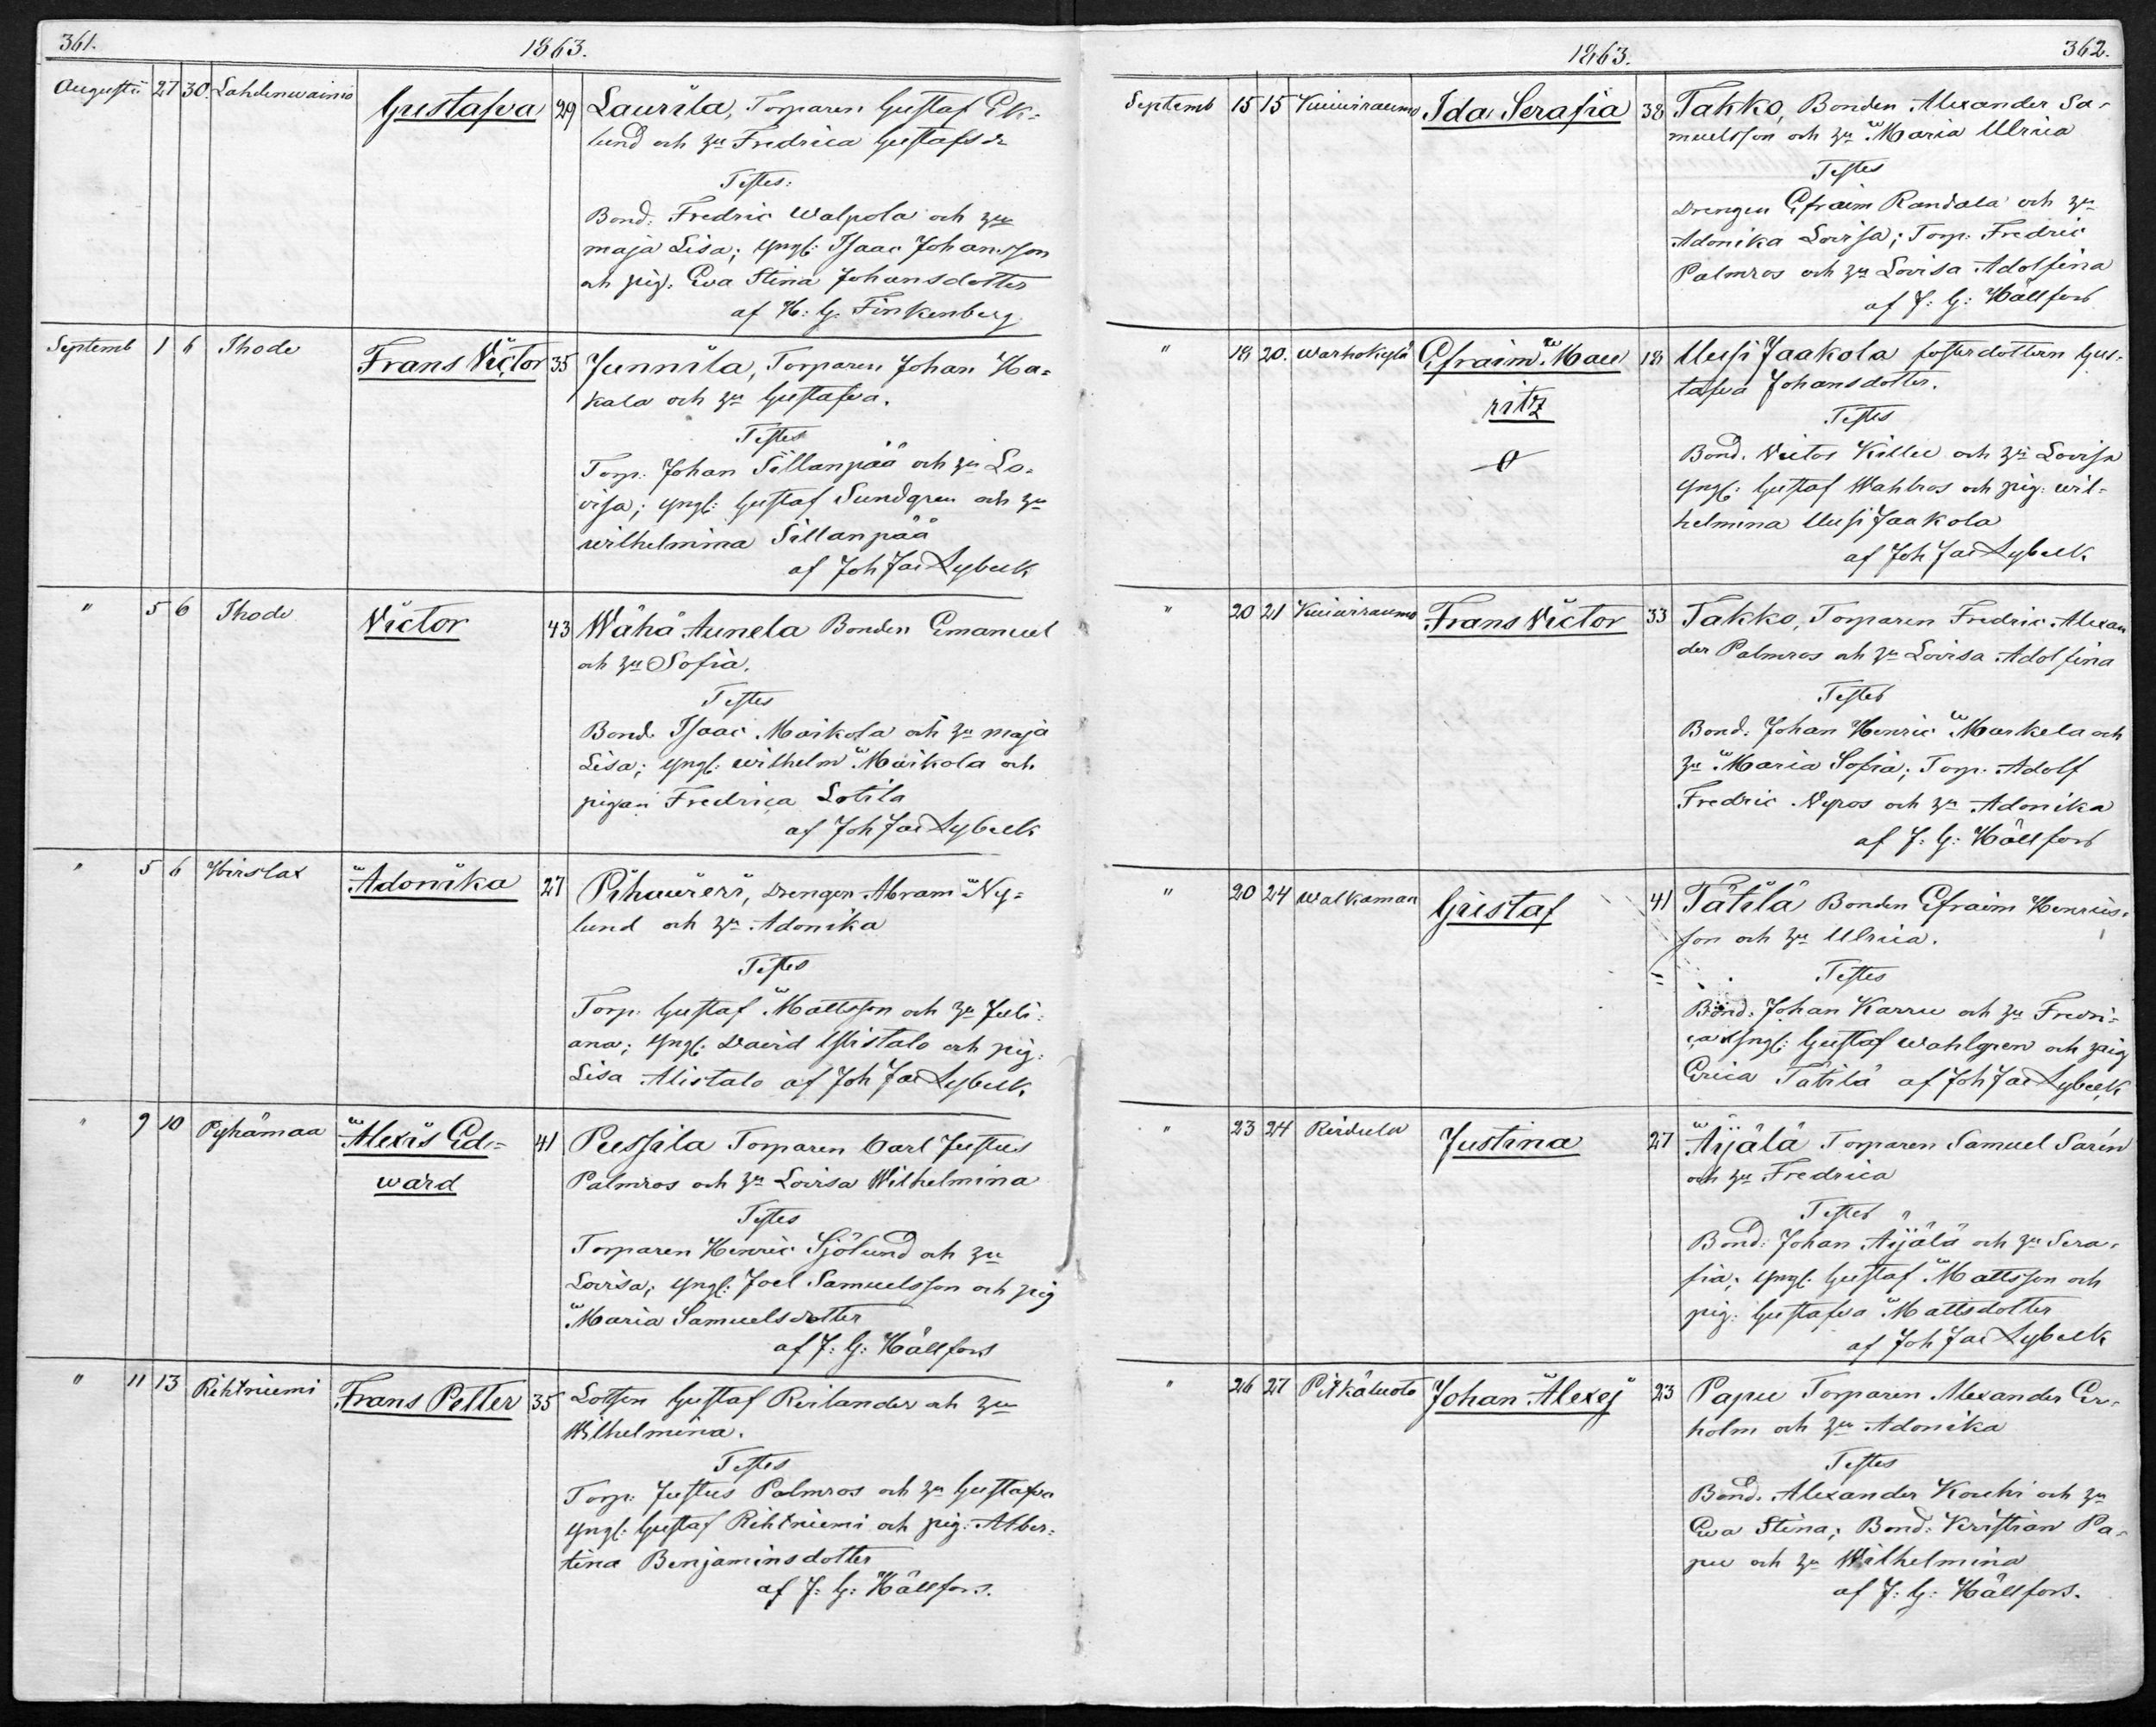 361.
1863.
Augusti 27 30. Lahdenwainio Gustafva 29 Laurila, Torparen Gustaf Ek-
lund och hu Fredrica Gustafsdr
Testes:
Bond. Fredric Walpola och hu
maja Lisa; yngl: Isaac Johansson
och pig. Eva Stina Johansdotter
af H: G. Finkenberg.
Septemb 1 6 Ihode Frans Victor 35 Junnila, Torparen Johan Ha-
kala och hu Gustafva.
Testes
Torp. Johan Sillanpää och hu Lo-
visa; yngl: Gustaf Sundgren och hu
wilhelmina Sillanpää
af Joh Jac Lybeck
" 5 6 Ihode Victor 43 Wähä Aunela Bonden Emanuel
och hu Sofia.
Testes
Bond. Isaac Maikola och hu maja
Lisa; yngl: wilhelm Maikola och
pigan Fredrica Lotila
af Joh Jac Lybeck
" 5 6 Hirslax Adonika 27 Pihawieri, drengen Abram Ny-
lund och hu Adonika
Testes
Torp. Gustaf Mattsson och hu Juli-
ana; yngl. David Ylistalo och pig.
Lisa Alistalo af Joh Jac Lybeck
" 9 10 Pyhämaa Alexis Ed-
ward
41 Pessila Torparen Carl Justus
Palmros och hu Lovisa Wilhelmina
Testes
Torparen Henric Sjölund och hu
Lovisa; yngl: Joel Samuelsson och pig
Maria Samuelsdotter
af J: G: Hällfors
" 11 13 Rihtniemi Frans Petter 35 Lotsen Gustaf Reilander och hu
Wilhelmina.
Testes
Torp: Justus Palmros och hu Gustafva
yngl: Gustaf Rihtniemi och pig: Alber-
tina Benjaminsdotter
af J: G: Hällfors.
1863.
362.
Septemb 15 15 Kuivirauma Ida Serafia 38 Takko, Bonden Alexander Sa-
muelsson och hu Maria Ulrica
Testes
drengen Efraim Randala och hu
Adonika Lovisa; Torp: Fredric
Palmros och hu Lovisa Adolfina
af J: G: Hällfors
" 18 20. Warhokylä Efraim Mau
ritz
18 Uusi Jaakola fosterdottern Gus-
tafva Johansdotter.
Testes
Bond. Victor Killu och hu Lovisa
yngl: Gustaf Wahlros och pig: wil-
helmina Uusi Jaakola
af Joh Jac Lybeck
" 20 21 Kuivirauma Frans Victor 33 Takko, Torparen Fredric Alexan
der Palmros och hu Lovisa Adolfina
Testes
Bond: Johan Henric Markela och
hu Maria Sofia; Torp. Adolf
Fredric Nyros och hu Adonika
af J: G: Hällfors
" 20 24 Walkaman Gustaf 41 Tätilä Bonden Efraim Henrics-
son och hu Ulrica.
Testes
Bond: Johan Karru och hu Fredri-
ca yngl: Gustaf Wahlgren och pig
Erica Tätilä af Joh Jac Lybeck
" 23 24 Reidula Justina 27 Äijälä Torparen Samuel Sarén
och hu Fredrica
Testes
Bond: Johan Äijälä och hu Sera-
fia; yngl. Gustaf Mattsson och
pig: Gustafva Mattsdotter
af Joh Jac Lybeck
" 26 27 Pitkäluoto Johan Alexej 23 Papu Torparen Alexander Er-
holm och hu Adonika
Testes
Bond. Alexander Kouhi och hu
Eva Stina; Bond: Kristian Pa-
pu och hu Wilhelmina
af J: G: Hällfors.